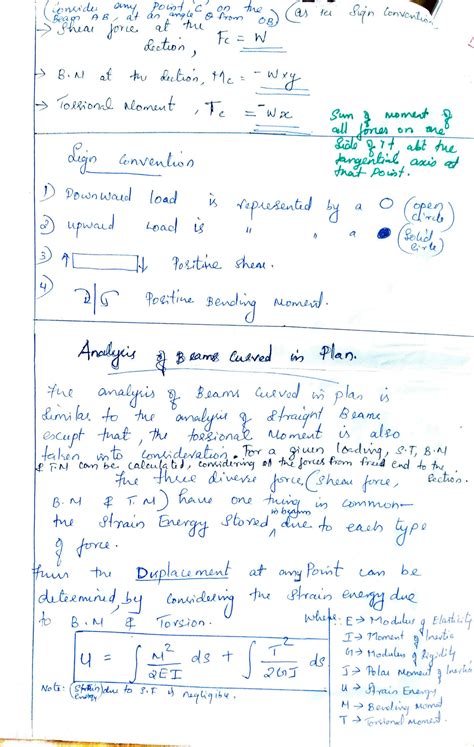 (Consider any point 'C' on the
Beam AB, at an angle θ from OB) (as per Sign Convention)
→ Shear force at the
section, Fc = W
→ B.M at the section, Mc = -Wxy
→ Torsional Moment, Tc = -Wx
Sum of moment of
all forces on one
side of it abt the
tangential axis at
that Point.
Sign Convention
1) Downward load is represented by a ○ (open
circle)
2) upward load is " " a ● (Solid
circle)
3) ↑ ↓ Positive Shear.
4) Positive Bending Moment.
Analysis of Beams Curved in Plan.
The analysis of Beams Curved in plan is
similar to the analysis of straight Beams
except that, the torsional Moment is also
taken into consideration. For a given loading, S.F, B.M
& T.M can be calculated, considering all the forces from free end to the
section.
The three diverse force (shear force,
B.M & T.M) have one thing in common—
the strain Energy Stored in beam due to each type
of force.
Thus the Displacement at any Point can be
determined, by considering the strain energy due
to B.M & Torsion.
U = ∫ M²/2EI ds + ∫ T²/2GJ ds
Note: (Strain energy) due to S.F is negligible.
Where: E → Modulus of Elasticity
I → Moment of Inertia
G → Modulus of Rigidity
J → Polar Moment of Inertia
U → Strain Energy
M → Bending Moment
T → Torsional Moment.